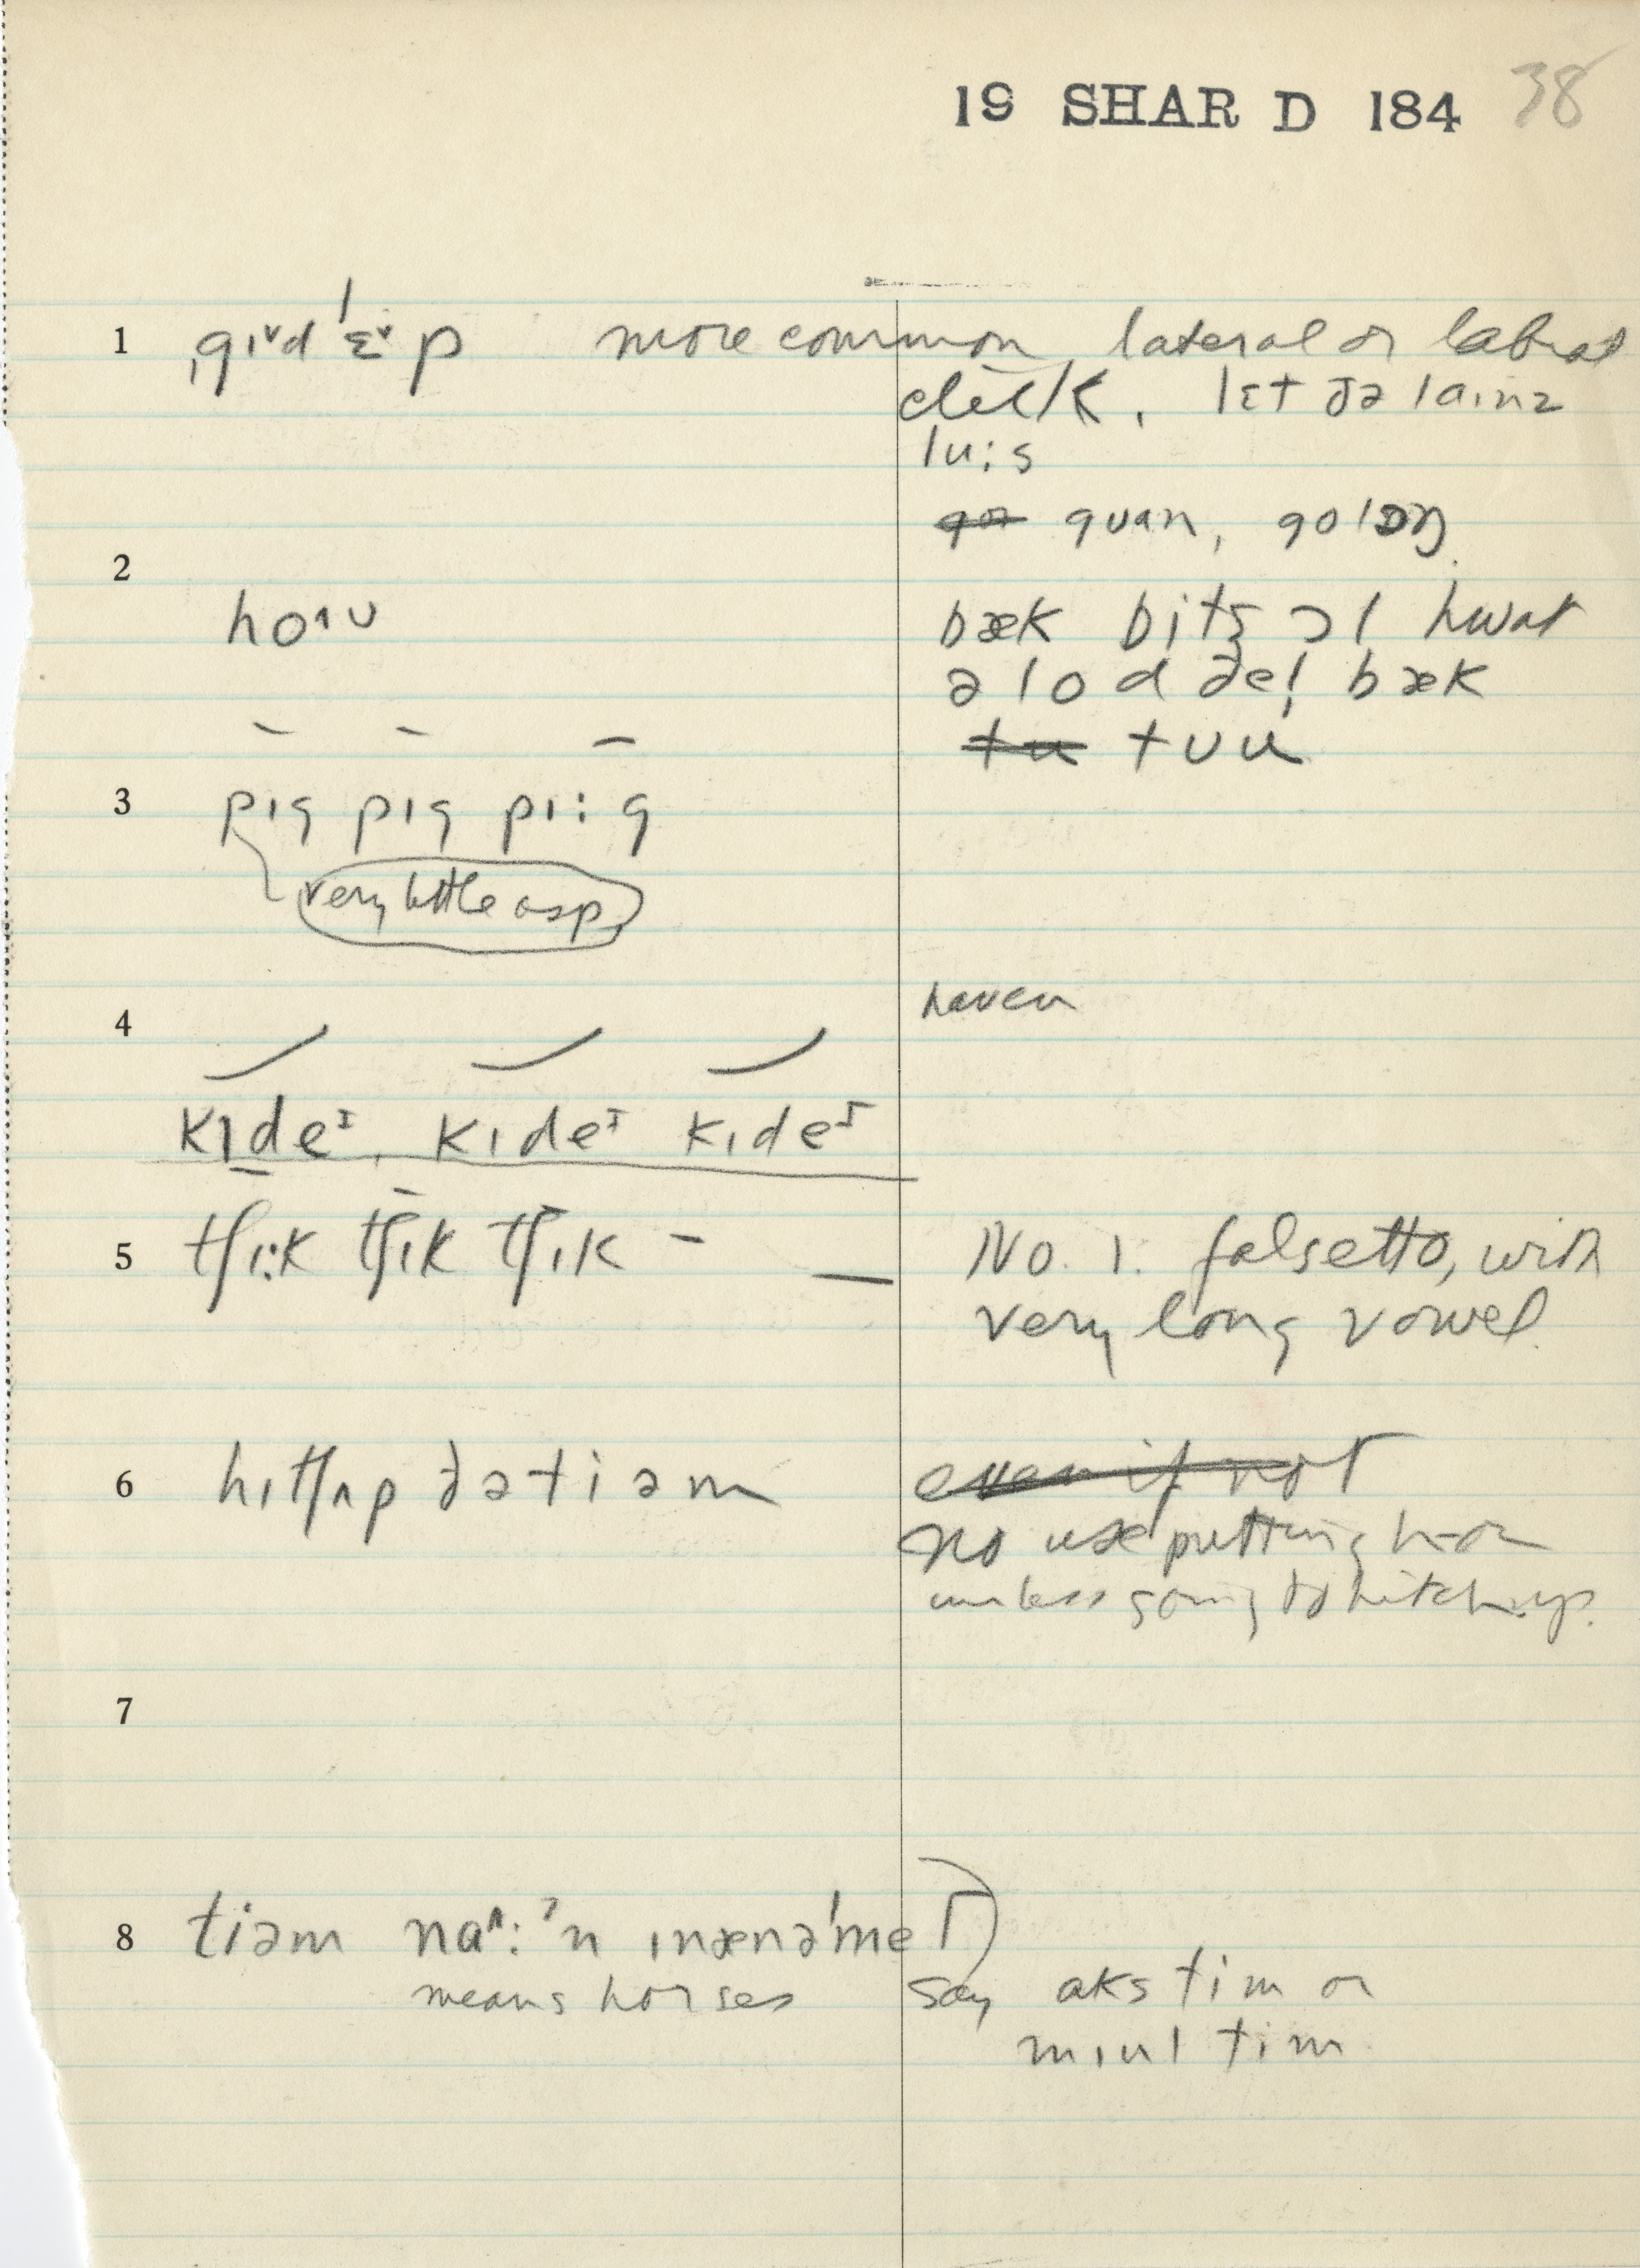 19 SHAR D 184 38
1 ˌgɪᵛd ˈɛᵛp more common, lateral or labial
click. lɛt ðə laɪnz
lu:s
guan, golɔŋ
2
hoʌu bæk bits ɔl hwat
ə lod ðeɪ bæk
tuu
3 pɪg pɪg pɪ:g
very little asp.
4 haven
kɪdeᶦ, kɪdeᶦ kɪdeᶦ
5 tʃɪ:k tʃɪk tʃɪk – — No. 1. falsetto, with
very long vowel.
6 hɪtʃʌp ðətiəm even if not
No use putting h- on
unless going to hitch up.
7
8 tiəm naʌ:ʾn ɪnænəˈmel
means horses say aks tim or
mɪul tim